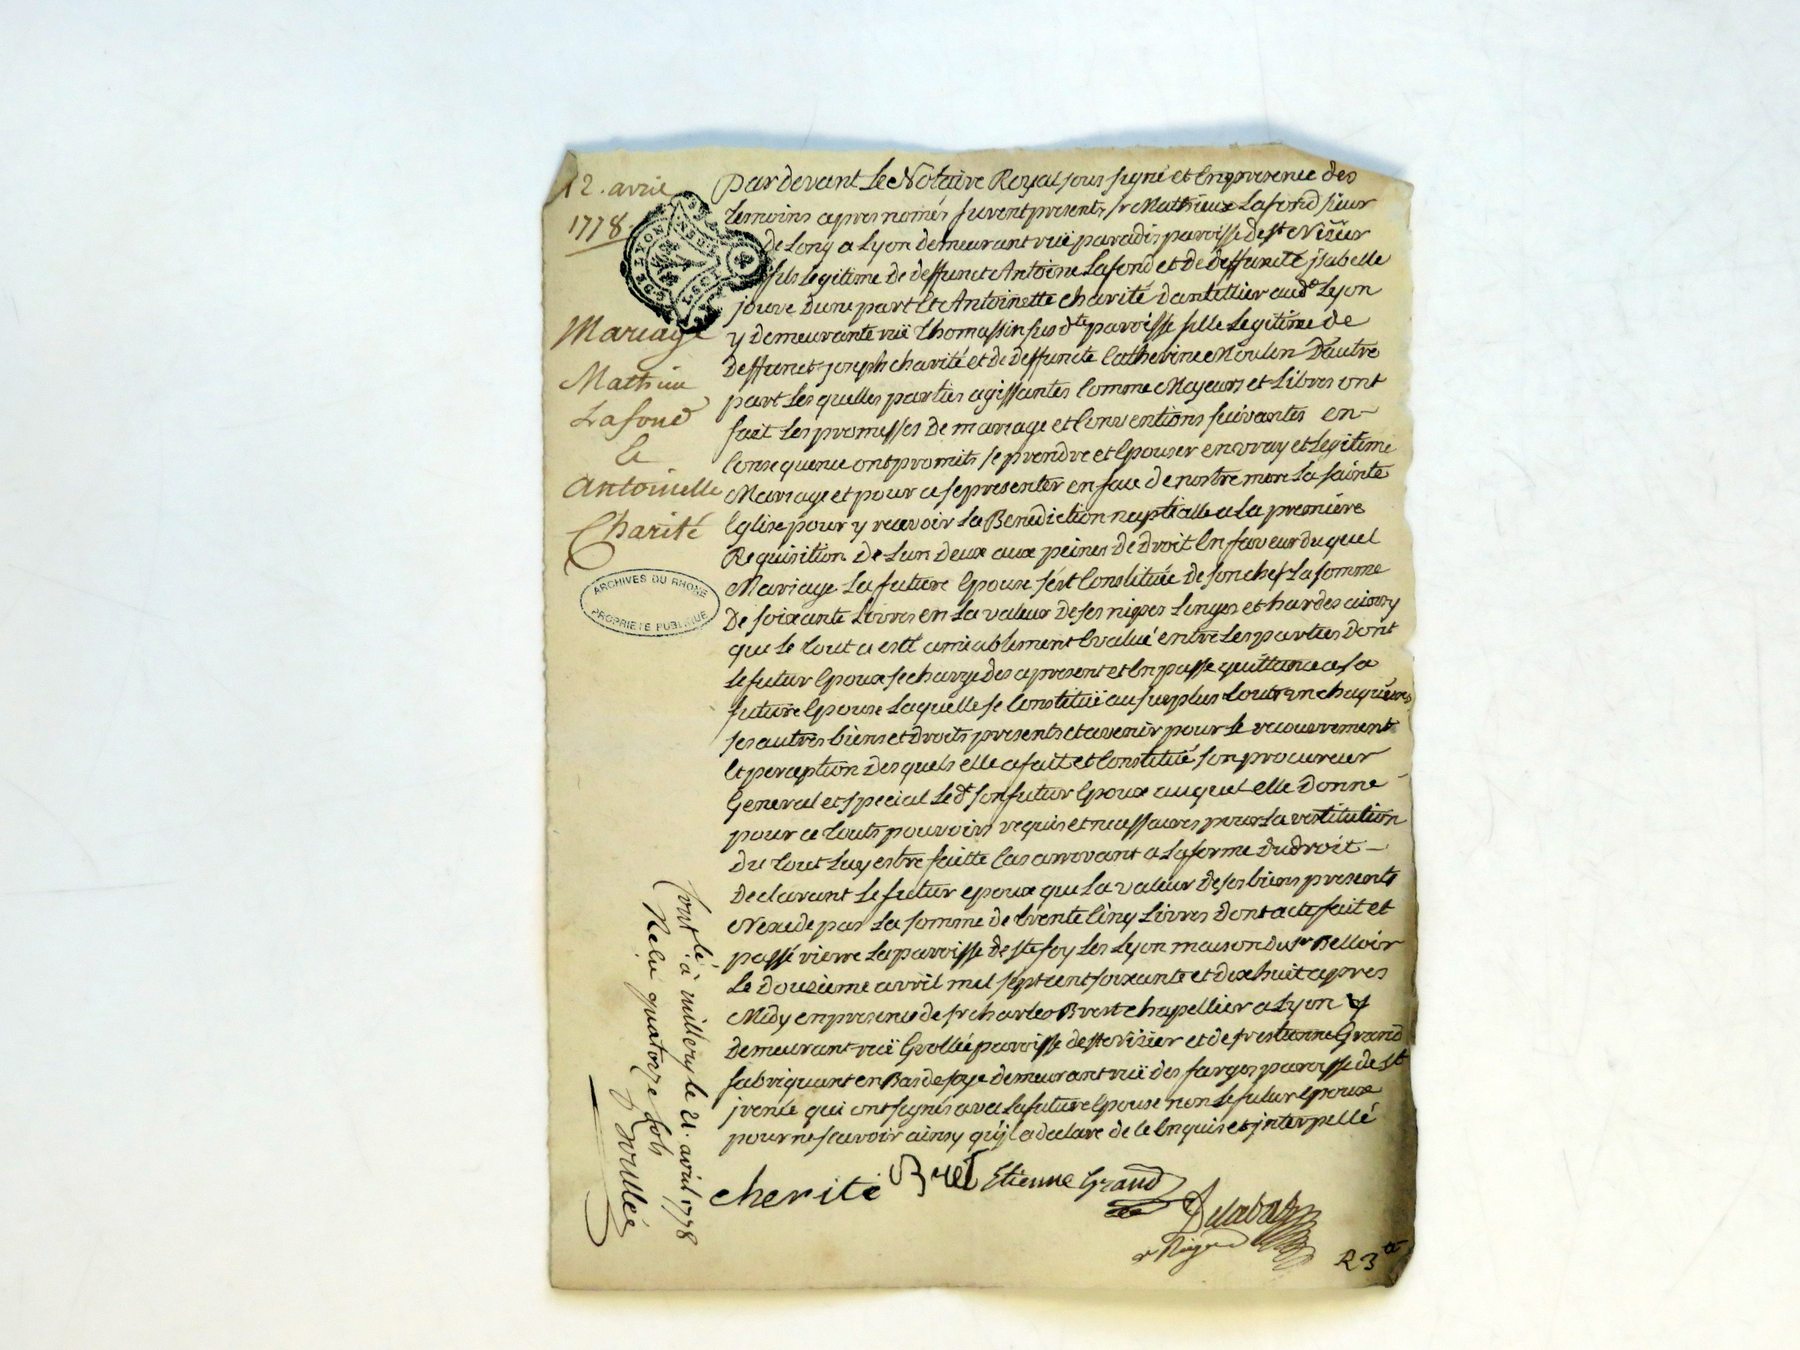 12. avril
1778
Mariage
Mathieu
Lafond
et
Antoinette
Charité
ARCHIVES DU RHONE
PROPRIETE PUBLIQUE
par devant Le Notaire Royal sous signé et En presence des
temoins apres només furent presents sr Mathieux Lafond sieur
de Long a Lyon demeurant ruë paradis paroisse de st Nizier
fils Legitime de deffunct Antoine Lafond et de deffuncte jsabelle
jouve dune part Et Antoinette charité dantellier aud Lyon
y demeurante ruë thomassin susdte paroisse fille Legitime de
deffunct joseph charité et de deffuncte Catherine Moulon D'autre
part Les quelles parties agissantes Comme Mayeurs et Libres ont
fait Les promesses De mariage et Conventions suivantes en
Consequence ont promits se prendre et Epouser en vray et Legitime
Mariage et pour ce se presenter en face de nostre mere La sainte
Eglise pour y recevoir La Benediction nuptialle a La premiere
Requisition De Lun deux aux peines De droit En faveur du quel
Mariage La future Epouse sést Constituée de son chef La somme
De soixante Livres en La valeur de ses nipes Linges et hardes ainsy
que Le tout a esté amiablement Evalué entre Les parties Dont
Le futur Epoux se charge des a present et En passe quittance a sa
future Epouse Laquelle se Constituë au surplus touts Un chaqu'uns
ses autres biens et droits presents et avenir pour Le recouvrement
Et perception Des quels elle a fait et Constitué son procureur
General et special Led son futur Epoux auquel elle Donne
pour ce touts pouvoirs requis et necessaires pour La restitution
Du tout Luy estre faitte Cas arrivant a La forme du droit
Declarant Le futur epoux que La valeur de ses biens presents
Nexede pas La somme de trente Cinq Livres dont acte fait et
passé rierre La paroisse de ste foy Les Lyon maison du sr Belloir
Le douzieme avril mil sept cent soixante et dix huit apres
Midy en presence de sr charles Bret chapellier a Lyon y
Demeurant ruë Grollée paroisse de st Nizier et de sr estienne Grand
fabriquant en Bas de soye demeurant ruë des farges paroisse de st
jrenée qui ont signés avec La future Epouse non Le futur Epoux
pour ne scavoir ainsy qu'jl a declare de le Enquis et jnterpellé
cherité Bret Etienne Grand
Delabat
R 3
Cont lé à millery le 21. avril 1778
Relu quatorze sols